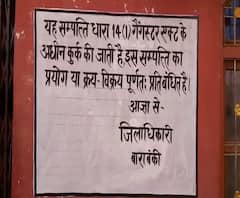 यह सम्पत्ति धारा 14(1) गैंगस्टर एक्ट के
अधीन कुर्क की जाती है, इस सम्पत्ति का
प्रयोग या क्रय-विक्रय पूर्णतः प्रतिबंधित है।
आज्ञा से-
जिलाधिकारी
बाराबंकी